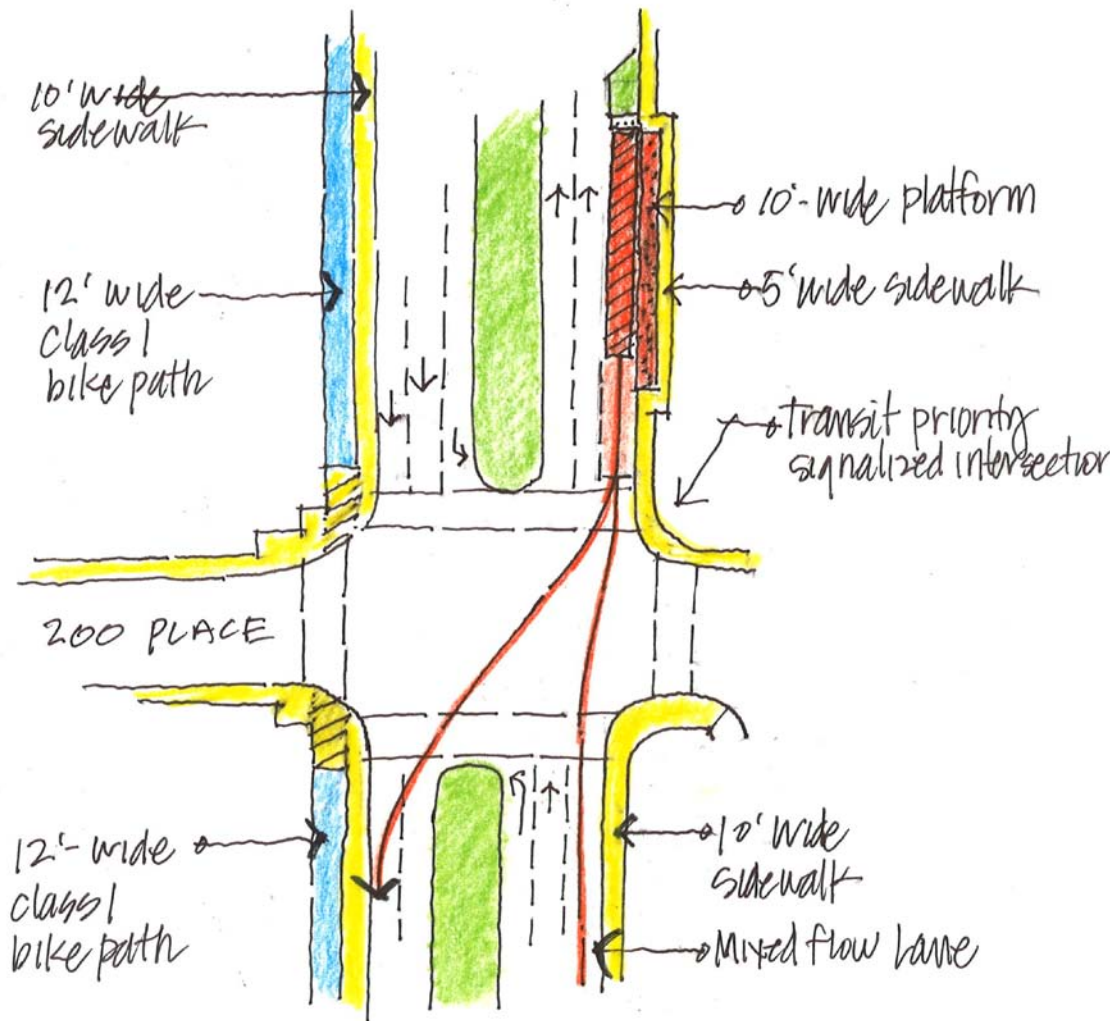 10' wide
sidewalk
12' wide
class 1
bike path
10'-wide platform
5' wide sidewalk
transit priority
signalized intersection
200 PLACE
12'-wide
class 1
bike path
10' wide
sidewalk
Mixed flow lane